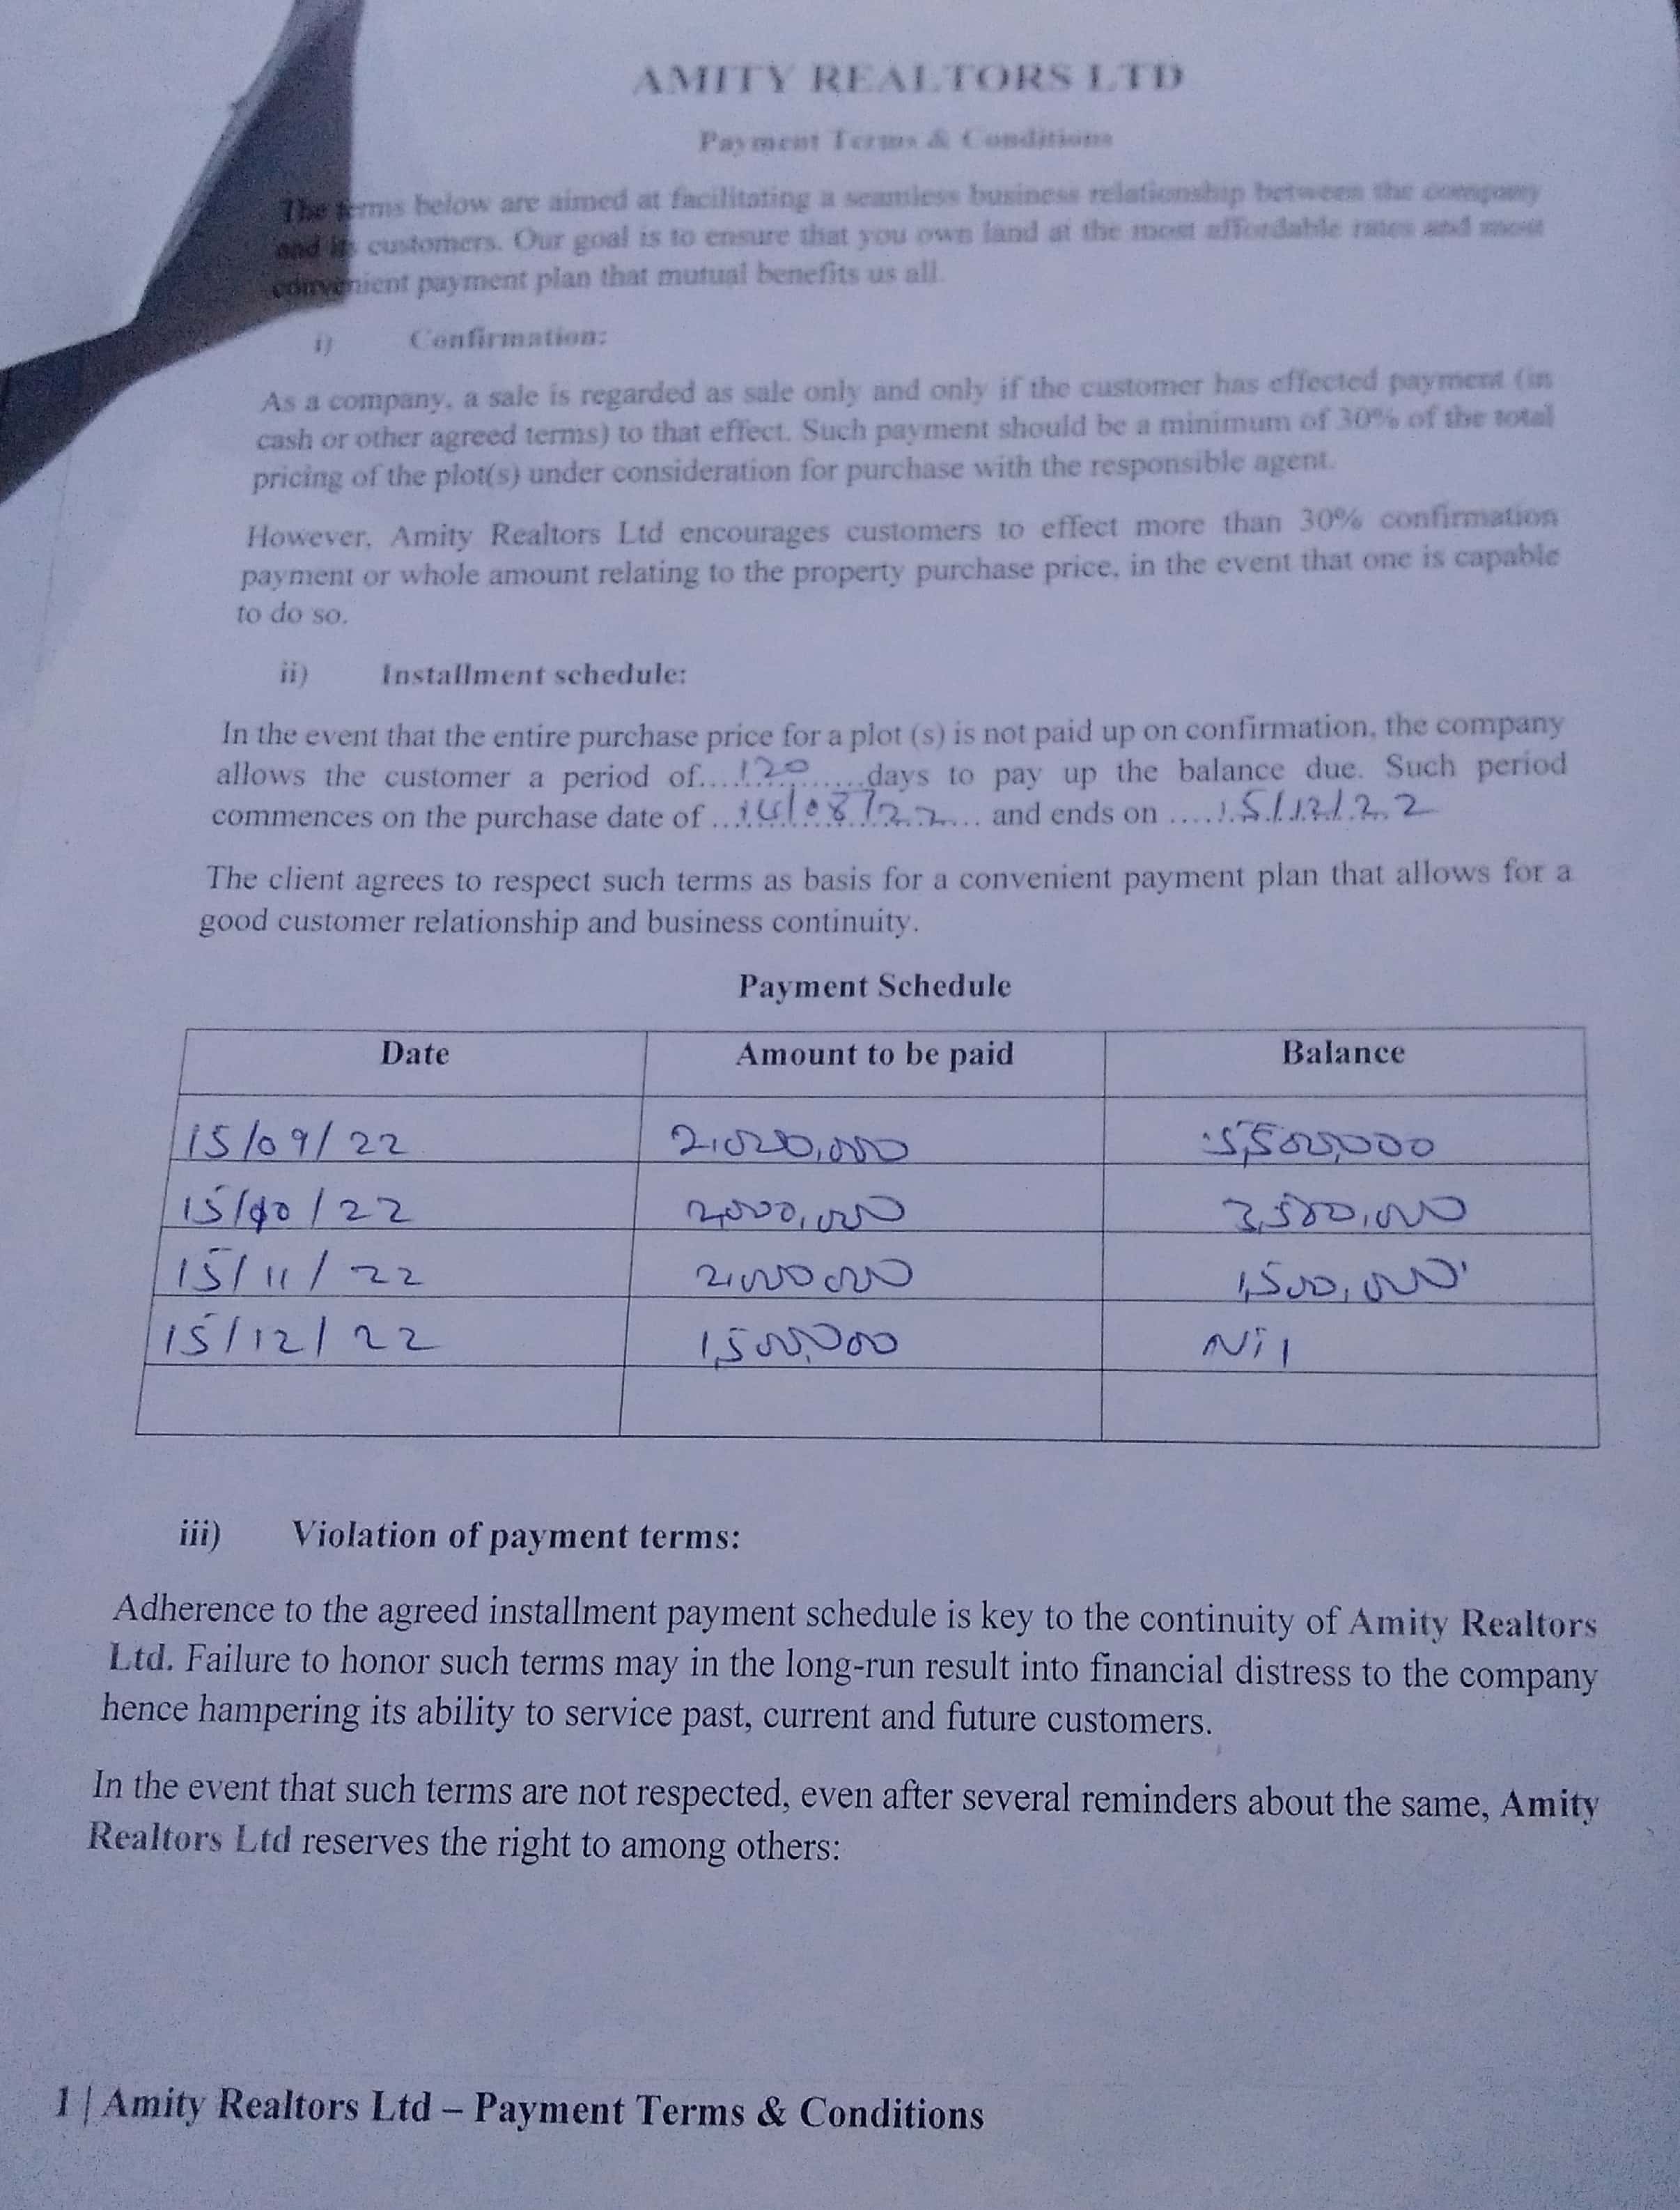 AMITY REALTORS LTD
Payment Terms & Conditions
The terms below are aimed at facilitating a seamless business relationship between the company
and its customers. Our goal is to ensure that you own land at the most affordable rates and most
convenient payment plan that mutual benefits us all.
i) Confirmation:
As a company, a sale is regarded as sale only and only if the customer has effected payment (in
cash or other agreed terms) to that effect. Such payment should be a minimum of 30% of the total
pricing of the plot(s) under consideration for purchase with the responsible agent.
However, Amity Realtors Ltd encourages customers to effect more than 30% confirmation
payment or whole amount relating to the property purchase price, in the event that one is capable
to do so.
ii) Installment schedule:
In the event that the entire purchase price for a plot (s) is not paid up on confirmation, the company
allows the customer a period of....120......days to pay up the balance due. Such period
commences on the purchase date of ... /08/22... and ends on ....15/12/22
The client agrees to respect such terms as basis for a convenient payment plan that allows for a
good customer relationship and business continuity.
Payment Schedule
Date Amount to be paid Balance
15/09/22 5,500,000
15/10/22 2,000,000 3,500,000
15/11/22 2,000,000 1,500,000
15/12/22 1,500,000 Nil
iii) Violation of payment terms:
Adherence to the agreed installment payment schedule is key to the continuity of Amity Realtors
Ltd. Failure to honor such terms may in the long-run result into financial distress to the company
hence hampering its ability to service past, current and future customers.
In the event that such terms are not respected, even after several reminders about the same, Amity
Realtors Ltd reserves the right to among others:
1 | Amity Realtors Ltd – Payment Terms & Conditions